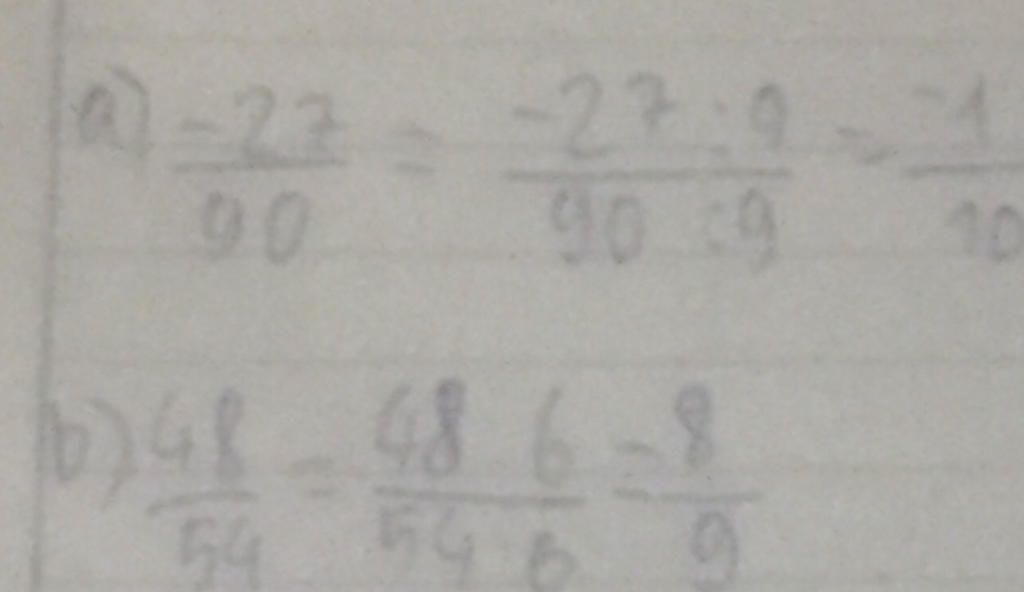 a) -27/90 = -27:9/90:9 = -1/10
b) 48/54 = 48 6/54 6 = 8/9